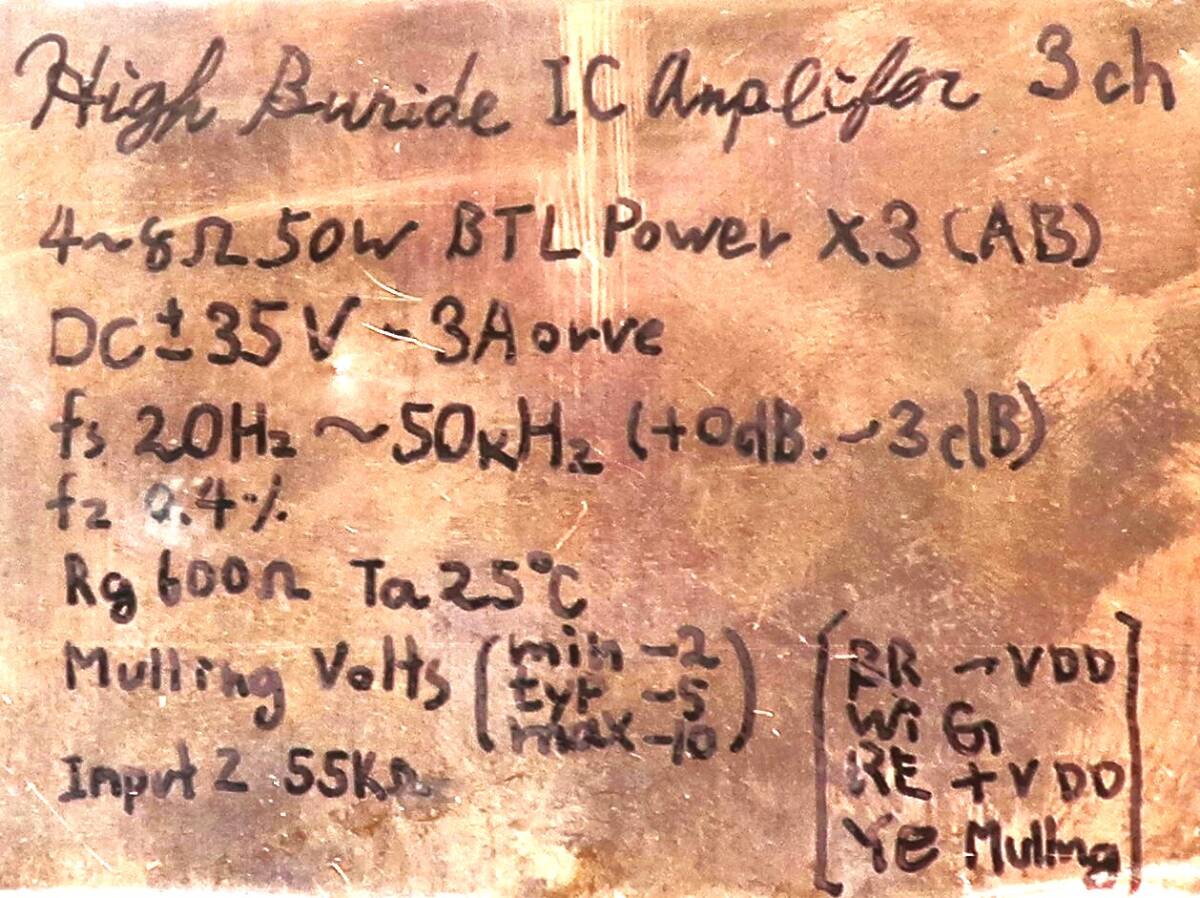 High Buride IC Amplifer 3ch
4~8Ω 50W BTL Power X3 (AB)
DC±35V - 3A orve
fs 20Hz ~50kHz (+0dB. -3dB)
fz 0.4%
Rg 600Ω Ta 25°C
Mulling Volts (min -2
tyr -5
max -10)
Input Z 55KΩ
[BR -VDD
Wi G
RE +VDD
Ye Mulling]